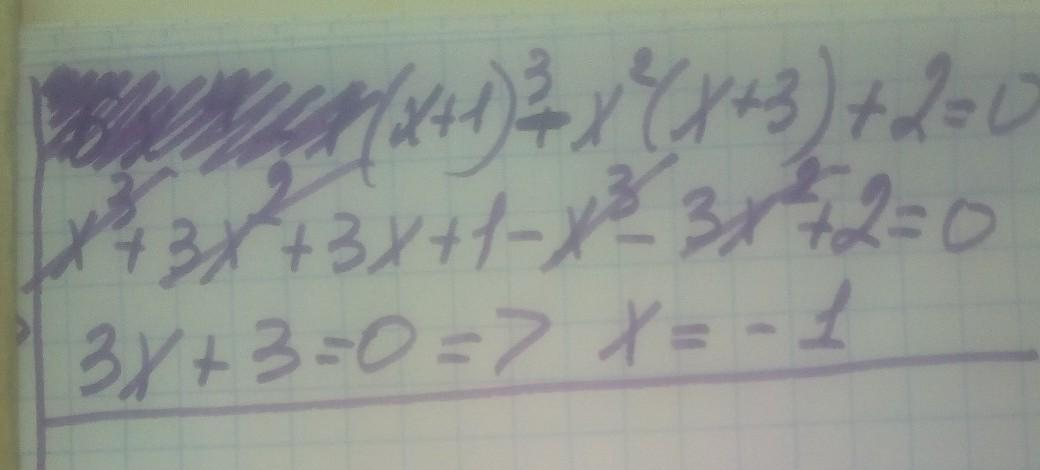 (x+1)³ - x²(x+3) + 2 = 0
x³ + 3x² + 3x + 1 - x³ - 3x² + 2 = 0
3x + 3 = 0 => x = -1